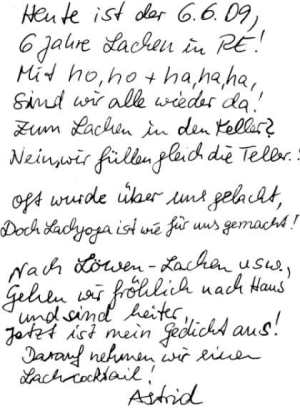 Heute ist der 6.6.09,
6 Jahre Lachen in RE!
Mit ho, ho + ha, ha, ha,
sind wir alle wieder da!
Zum Lachen in den Keller?
Nein, wir füllen gleich die Teller!
Oft wurde über uns gelacht,
Doch Lachyoga ist wie für uns gemacht!
Nach Löwen-Lachen usw.,
Gehen wir fröhlich nach Haus
und sind heiter,
Jetzt ist mein Gedicht aus!
Darauf nehmen wir einen
Lachcocktail!
Astrid